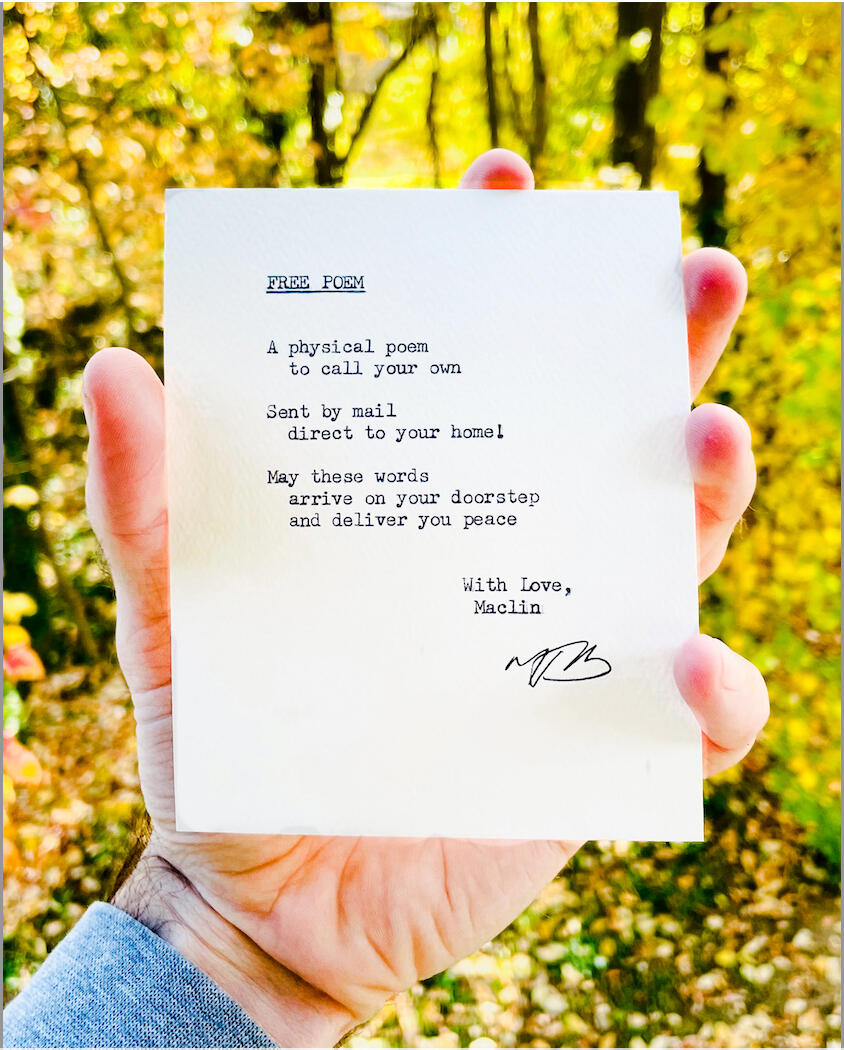 FREE POEM
A physical poem
to call your own
Sent by mail
direct to your home!
May these words
arrive on your doorstep
and deliver you peace
With Love,
Maclin